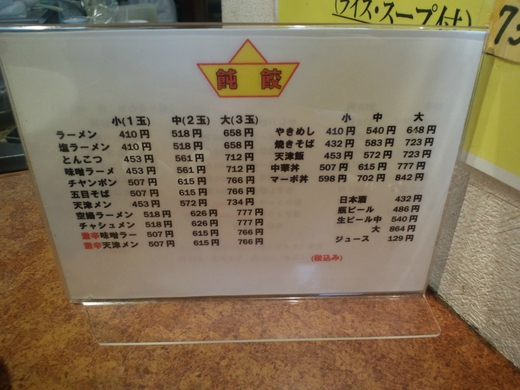 (ライス・スープ付)
飩餃
小(1玉) 中(2玉) 大(3玉)
ラーメン 410円 518円 658円
塩ラーメン 410円 518円 658円
とんこつ 453円 561円 712円
味噌ラーメ 453円 561円 712円
チャンポン 507円 615円 766円
五目そば 507円 615円 766円
天津メン 453円 572円 734円
空揚ラーメン 518円 626円 777円
チャシュメン 518円 626円 777円
激辛味噌ラー 507円 615円 766円
激辛天津メン 507円 615円 766円
小 中 大
やきめし 410円 540円 648円
焼きそば 432円 583円 723円
天津飯 453円 572円 723円
中華丼 507円 615円 777円
マーボ丼 598円 702円 842円
日本酒 432円
瓶ビール 486円
生ビール中 540円
大 864円
ジュース 129円
(税込み)